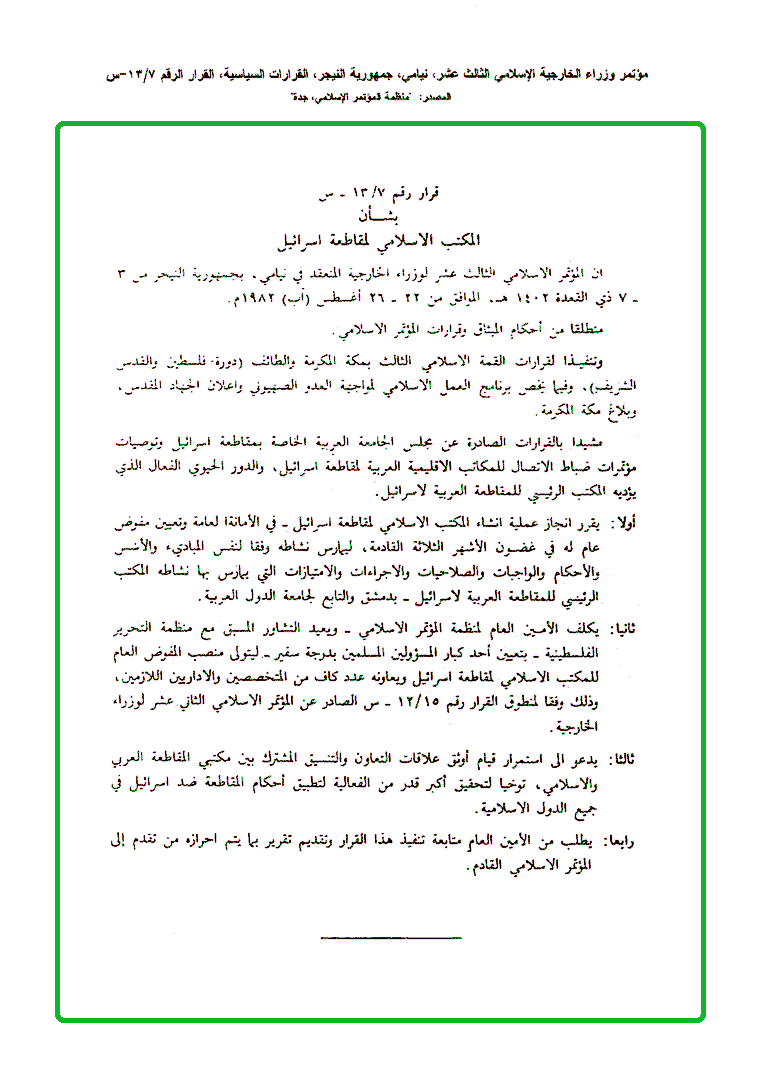 مؤتمر وزراء الخارجية الإسلامي الثالث عشر، نيامي، جمهورية النيجر، القرارات السياسية، القرار الرقم ١٣/٧–س
المصدر: "منظمة المؤتمر الإسلامي، جدة"
قرار رقم ١٣/٧ ـ س
بشـــأن
المكتب الاسلامي لمقاطعة اسرائيل
ان المؤتمر الاسلامي الثالث عشر لوزراء الخارجية المنعقد في نيامي، بجمهورية النيجر من ٣
ـ ٧ ذي القعدة ١٤٠٢ هـ. الموافق من ٢٢ ـ ٢٦ أغسطس (آب) ١٩٨٢م.
منطلقا من أحكام الميثاق وقرارات المؤتمر الاسلامي.
وتنفيـذا لقرارات القمة الاسلامي الثالث بمكة المكرمة والطائف (دورة فلسطين والقدس
الشريف)، وفيما يخص برنامج العمل الاسلامي لمواجهة العدو الصهيوني واعلان الجهاد المقدس،
وبلاغ مكة المكرمة.
مشيدا بالقرارات الصادرة عن مجلس الجامعة العربية الخاصة بمقاطعة اسرائيل وتوصيات
مؤتمرات ضباط الاتصال للمكاتب الاقليمية العربية لمقاطعة اسرائيل، والدور الحيوي الفعال الذي
يؤديه المكتب الرئيسي للمقاطعة العربية لاسرائيل.
أولا: يقرر انجاز عملية انشاء المكتب الاسلامي لمقاطعة اسرائيل ـ في الأمانةا لعامة وتعيين مفوض
عام له في غضــون الأشهر الثلاثة القادمة، ليمارس نشاطه وفقا لنفس المباديء والأسس
والأحكام والواجبات والصلاحيات والاجراءات والامتيازات التي يمارس بها نشاطه المكتب
الرئيسي للمقاطعة العربية لاسرائيل ـ بدمشق والتابع لجامعة الدول العربية.
ثانيا: يكلف الأمين العام لمنظمة المؤتمر الاسلامي ـ وبعيد التشاور المسبق مع منظمة التحرير
الفلسطينية ـ بتعيين أحد كبار المسؤولين المسلمين بدرجة سفير ـ ليتولى منصب المفوض العام
للمكتب الاسلامي لمقاطعة اسرائيل ويعاونه عدد كاف من المتخصصين والاداريين اللازمين،
وذلك وفقا لمنطوق القرار رقم ١٢/١٥ ـ س الصادر عن المؤتمر الاسلامي الثاني عشر لوزراء
الخارجية.
ثالثا: يدعو الى استمرار قيام أوثق علاقات التعاون والتنسيق المشترك بين مكتبي المقاطعة العربي
والاسلامي، توخيا لتحقيق أكبر قدر من الفعالية لتطبيق أحكام المقاطعة ضد اسرائيل في
جميع الدول الاسلامية.
رابعا: يطلب من الأمين العام متابعة تنفيذ هذا القرار وتقديم تقرير بما يتم احرازه من تقدم إلى
المؤتمر الاسلامي القادم.